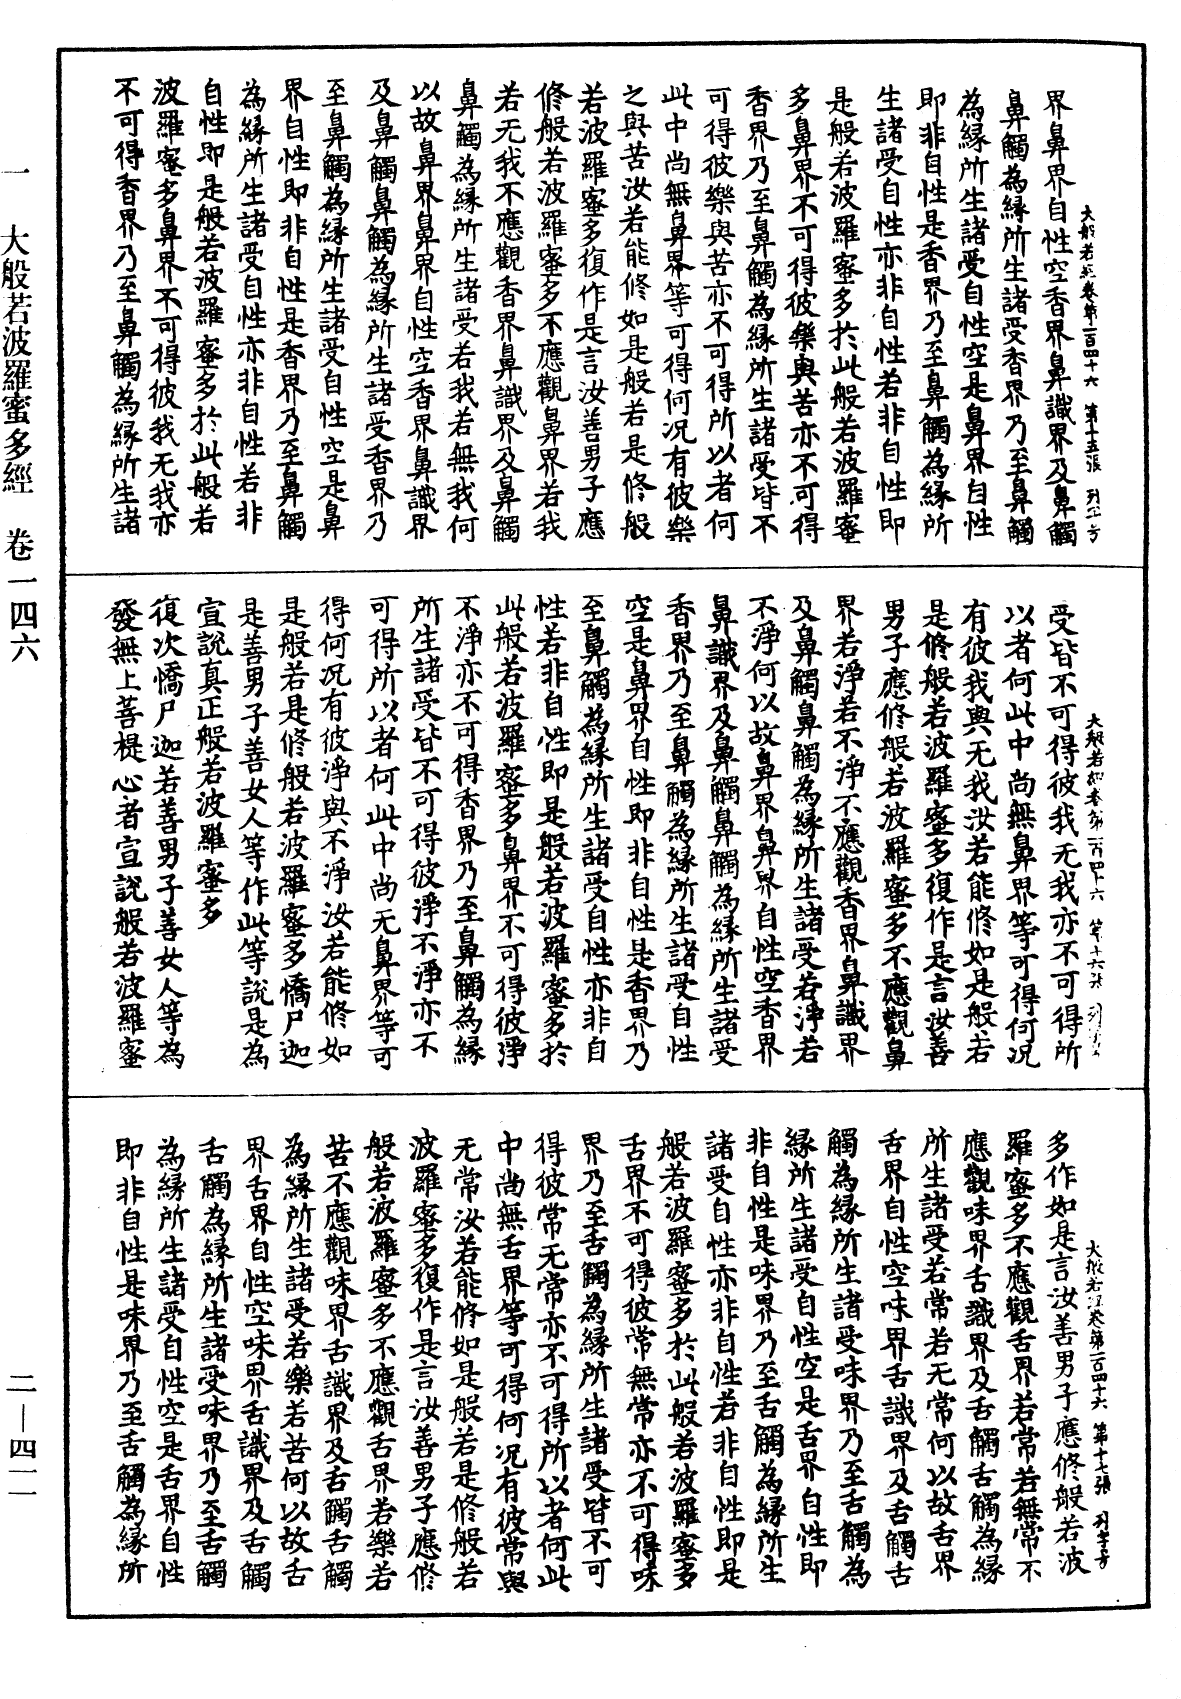 大般若經卷第一百四十六 第十五張 列字号
界鼻界自性空香界鼻識界及鼻觸
鼻觸為緣所生諸受香界乃至鼻觸
為緣所生諸受自性空是鼻界自性
即非自性是香界乃至鼻觸為緣所
生諸受自性亦非自性若非自性即
是般若波羅蜜多於此般若波羅蜜
多鼻界不可得彼樂與苦亦不可得
香界乃至鼻觸為緣所生諸受皆不
可得彼樂與苦亦不可得所以者何
此中尚無鼻界等可得何況有彼樂
之與苦汝若能修如是般若是修般
若波羅蜜多復作是言汝善男子應
修般若波羅蜜多不應觀鼻界若我
若无我不應觀香界鼻識界及鼻觸
鼻觸為緣所生諸受若我若無我何
以故鼻界鼻界自性空香界鼻識界
及鼻觸鼻觸為緣所生諸受香界乃
至鼻觸為緣所生諸受自性空是鼻
界自性即非自性是香界乃至鼻觸
為緣所生諸受自性亦非自性若非
自性即是般若波羅蜜多於此般若
波羅蜜多鼻界不可得彼我无我亦
不可得香界乃至鼻觸為緣所生諸
大般若經卷第一百四十六 第十六張 列字号
受皆不可得彼我无我亦不可得所
以者何此中尚無鼻界等可得何況
有彼我與无我汝若能修如是般若
是修般若波羅蜜多復作是言汝善
男子應修般若波羅蜜多不應觀鼻
界若淨若不淨不應觀香界鼻識界
及鼻觸鼻觸為緣所生諸受若淨若
不淨何以故鼻界鼻界自性空香界
鼻識界及鼻觸鼻觸為緣所生諸受
香界乃至鼻觸為緣所生諸受自性
空是鼻界自性即非自性是香界乃
至鼻觸為緣所生諸受自性亦非自
性若非自性即是般若波羅蜜多於
此般若波羅蜜多鼻界不可得彼淨
不淨亦不可得香界乃至鼻觸為緣
所生諸受皆不可得彼淨不淨亦不
可得所以者何此中尚无鼻界等可
得何況有彼淨與不淨汝若能修如
是般若是修般若波羅蜜多憍尸迦
是善男子善女人等作此等說是為
宣說真正般若波羅蜜多
復次憍尸迦若善男子善女人等為
發無上菩提心者宣說般若波羅蜜
大般若經卷第一百四十六 第十七張 列字号
多作如是言汝善男子應修般若波
羅蜜多不應觀舌界若常若無常不
應觀味界舌識界及舌觸舌觸為緣
所生諸受若常若无常何以故舌界
舌界自性空味界舌識界及舌觸舌
觸為緣所生諸受味界乃至舌觸為
緣所生諸受自性空是舌界自性即
非自性是味界乃至舌觸為緣所生
諸受自性亦非自性若非自性即是
般若波羅蜜多於此般若波羅蜜多
舌界不可得彼常無常亦不可得味
界乃至舌觸為緣所生諸受皆不可
得彼常无常亦不可得所以者何此
中尚無舌界等可得何況有彼常與
无常汝若能修如是般若是修般若
波羅蜜多復作是言汝善男子應修
般若波羅蜜多不應觀舌界若樂若
苦不應觀味界舌識界及舌觸舌觸
為緣所生諸受若樂若苦何以故舌
界舌界自性空味界舌識界及舌觸
舌觸為緣所生諸受味界乃至舌觸
為緣所生諸受自性空是舌界自性
即非自性是味界乃至舌觸為緣所
一 大般若波羅蜜多經 卷一四六
二—四一一